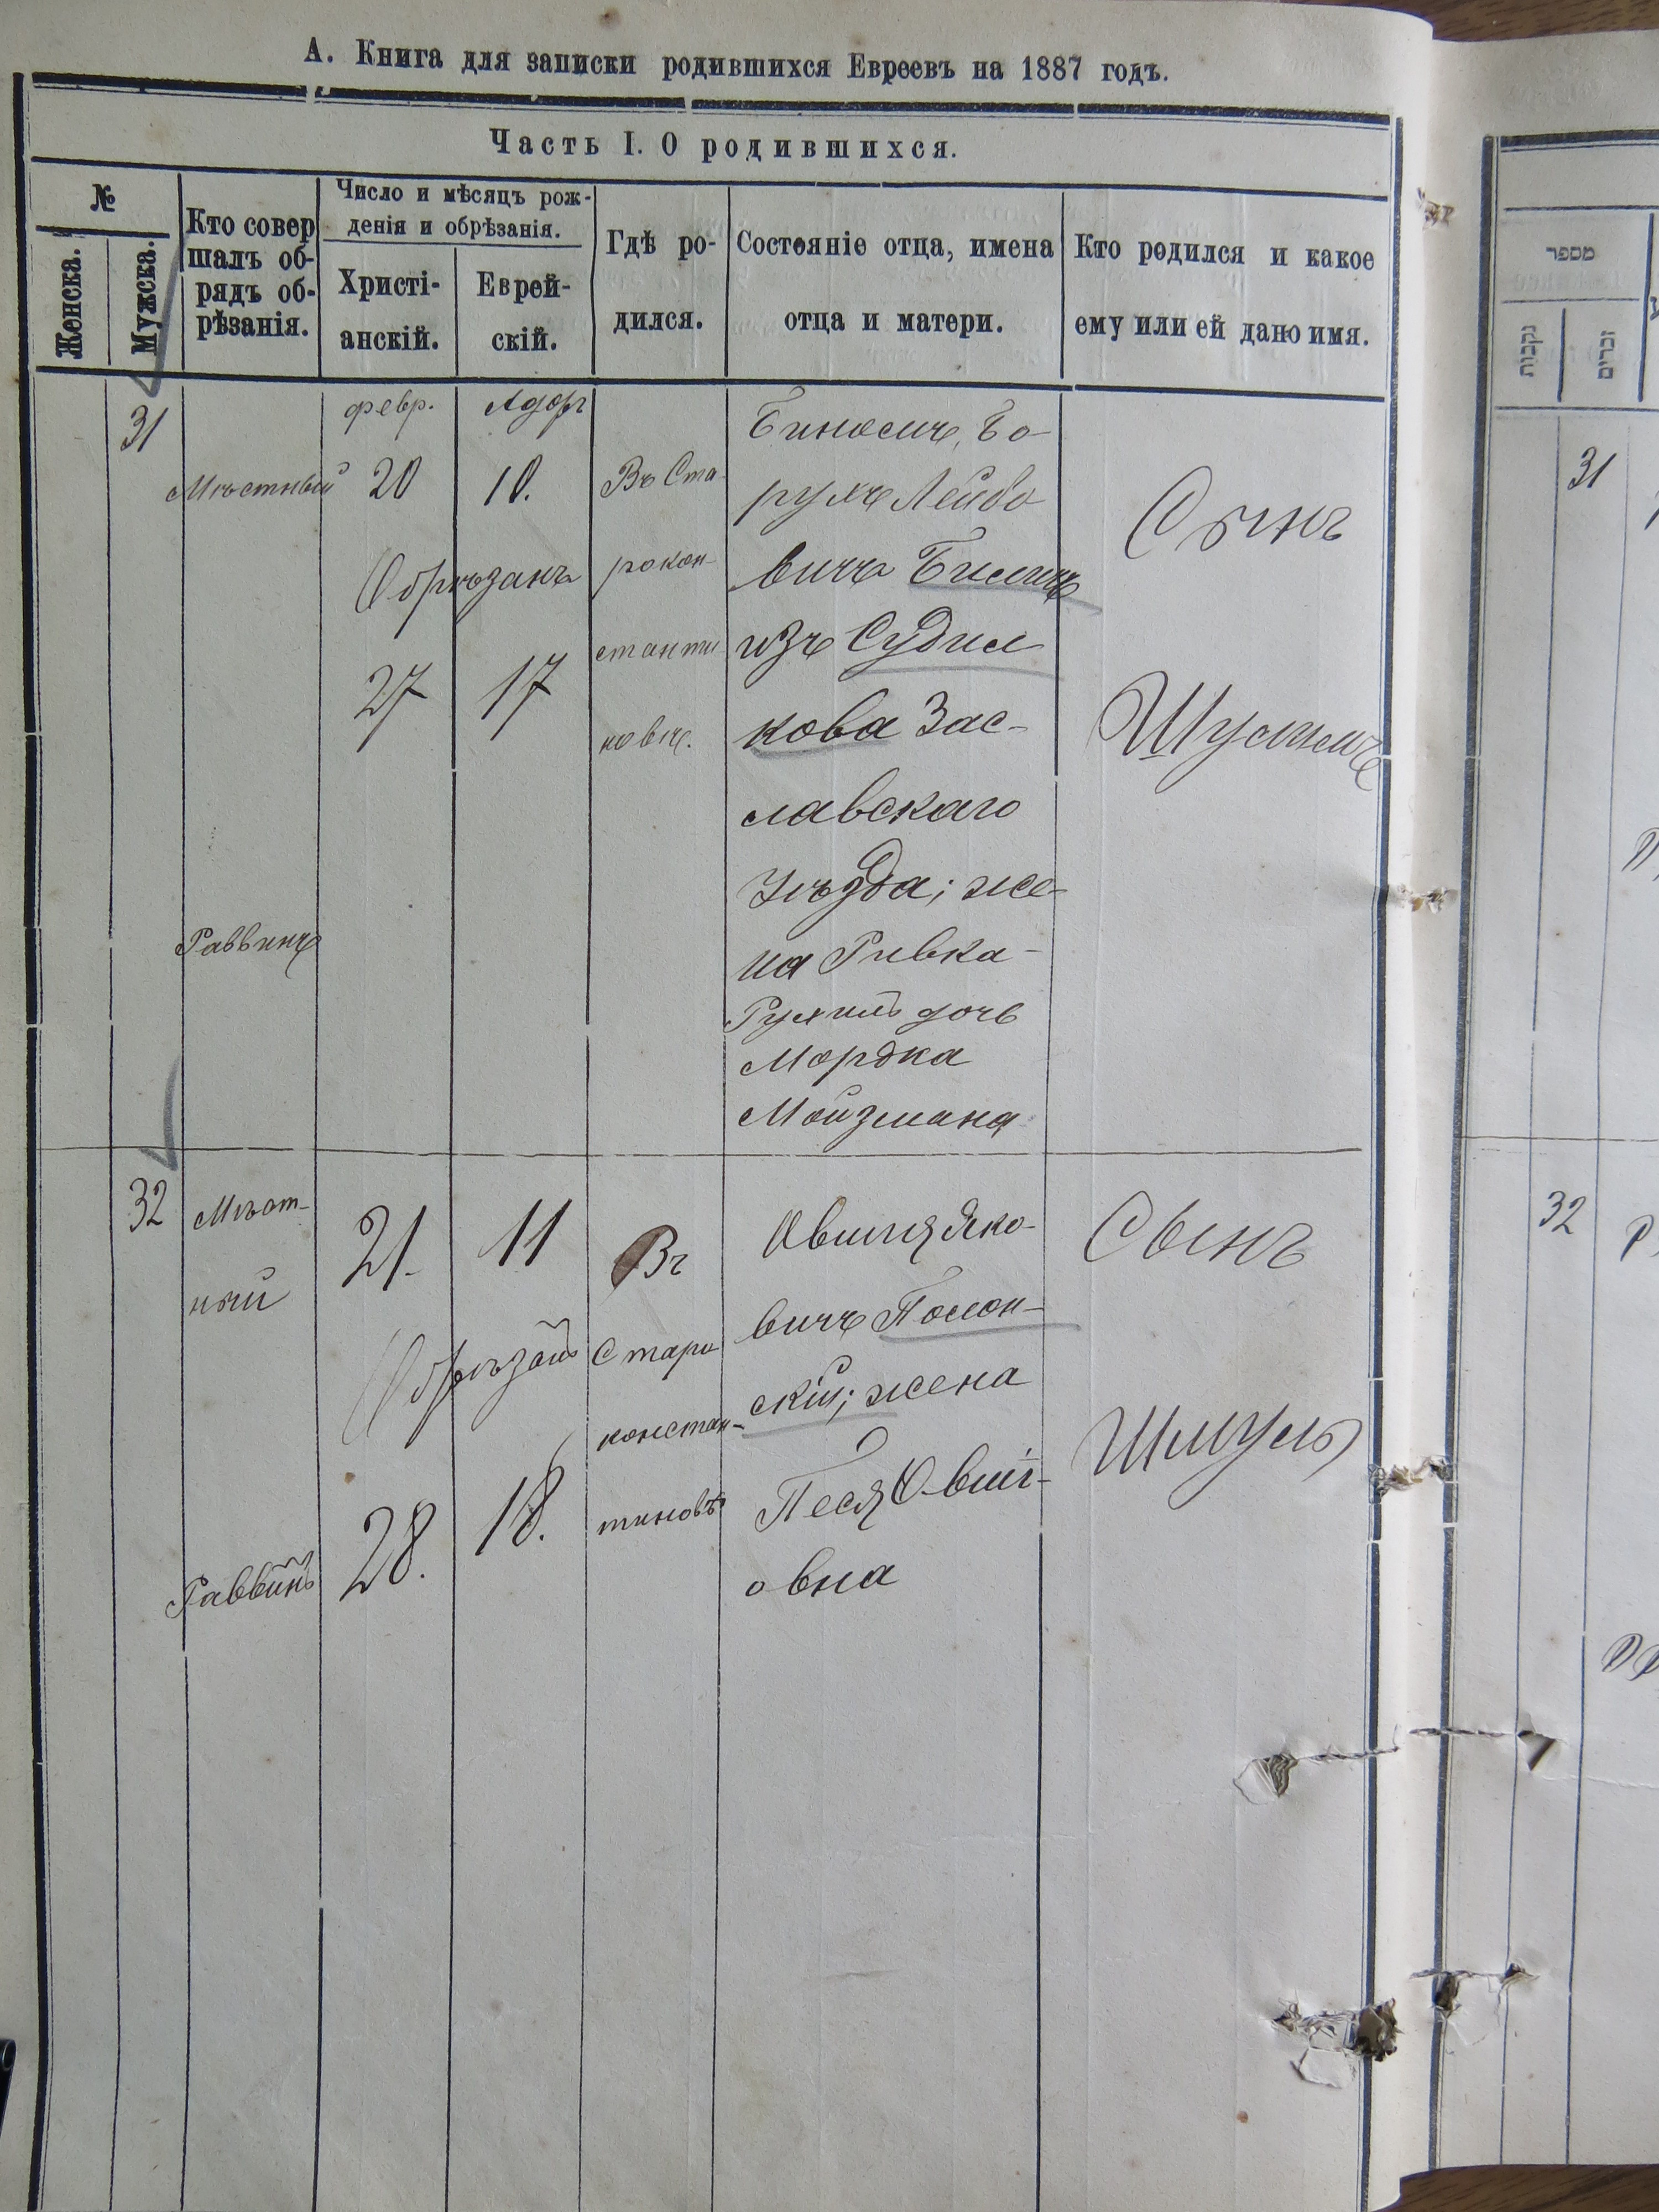 А. Книга для записки родившихся Евреевъ на 1887 годъ.
Часть I. О родившихся.
№
Женска.
Мужска.
Кто совер
шалъ об-
рядъ об-
рѣзанія.
Число и мѣсяцъ рож-
денія и обрѣзанія.
Христі-
анскій.
Еврей-
скій.
Гдѣ ро-
дился.
Состояніе отца, имена
отца и матери.
Кто родился и какое
ему или ей дано имя.
31
Мѣстный
Раввинъ
февр.
20
Адоръ
10.
Обрѣзанъ
27
17
Въ Ста
рокон
станти
новѣ.
Бо
рухъ Лейбо
вичъ
изъ Судил
кова Зас-
лавскаго
Уѣзда; же-
на Ривка-
дочь
Мордка
Мойзмана
Сынъ
32
Мѣст-
ный
Раввинъ
21.
11
Обрѣзанъ
28.
18.
Въ
Старо
констан-
тиновѣ
Овшія Яко-
вичъ Полон-
скій; жена
Песя Овші-
овна
Сынъ
Шмуль
מספר
נקבות
זכרים
31
32